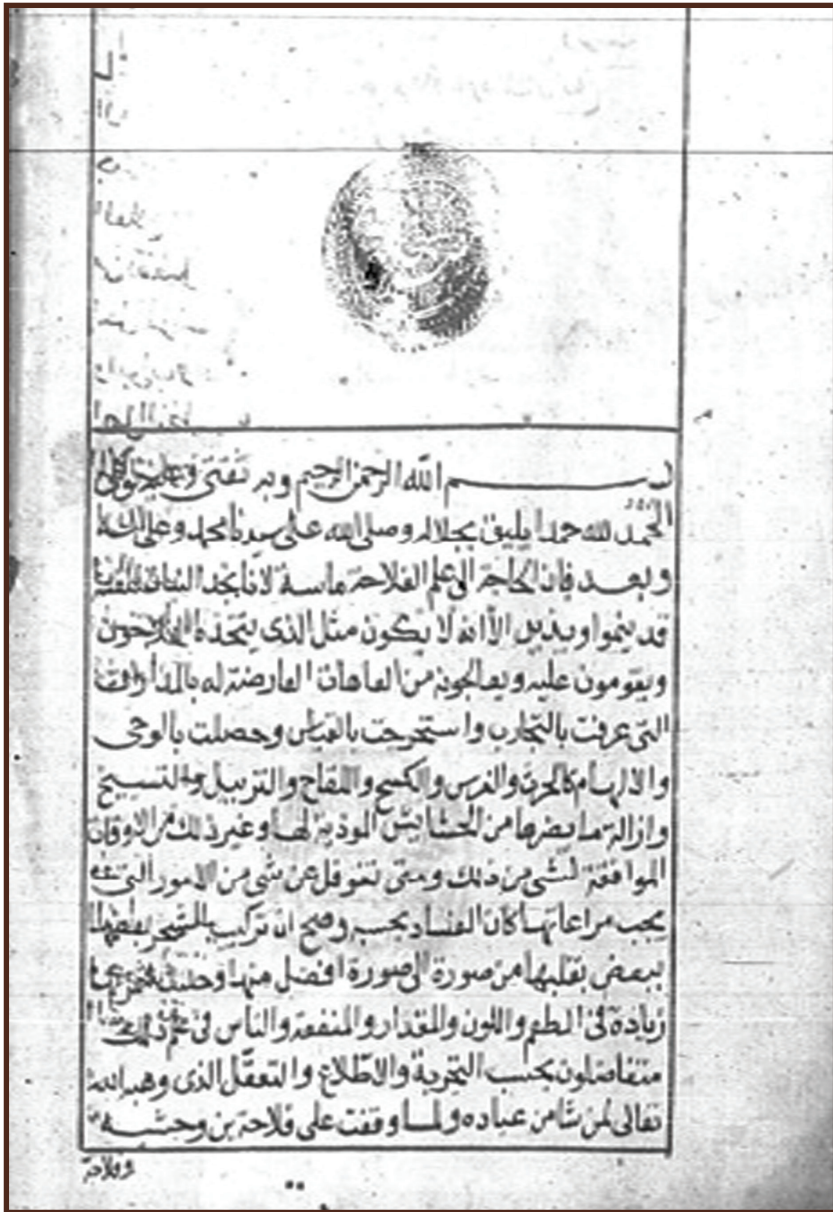 بسم الله الرحمن الرحيم وبه ثقتي وعليه توكلي
الحمد لله حمدا يليق بجلاله وصلى الله على سيدنا محمد وعلى اله
وبعد فان الحاجة الى علم الفلاحة ماسة لانا نجد النبات
قد ينموا ويذبل الا انه لا يكون مثل الذي يتخذه الفلاحون
ويقومون عليه ويعالجونه من العاهات العارضة له بالمداواة
التي عرفت بالتجارب واستخرجت بالقياس وحصلت بالوحي
والالهام كالحرث والغرس والكسح واللقاح والتزبيل والتسبيخ
وازالة ما يضرها من الحشايش الموذية لها وغير ذلك من الاوقات
الموافقة لشي من ذلك ومتى تغوفل عن شي من الامور التي
يجب مراعاتها كان الفساد بحسبه وصح ان تركيب الشجر بعضها
ببعض يقلبها من صورة الى صورة افضل منها وحينئذ
زيادة في الطعم واللون والمقدار والمنفعة والناس في علم ذلك
متفاضلون بحسب التجربة والاطلاع والتعقل الذي وهبه الله
تعالى لمن شا من عباده ولما وقفت على فلاحة بن وحشية
وفلاحة